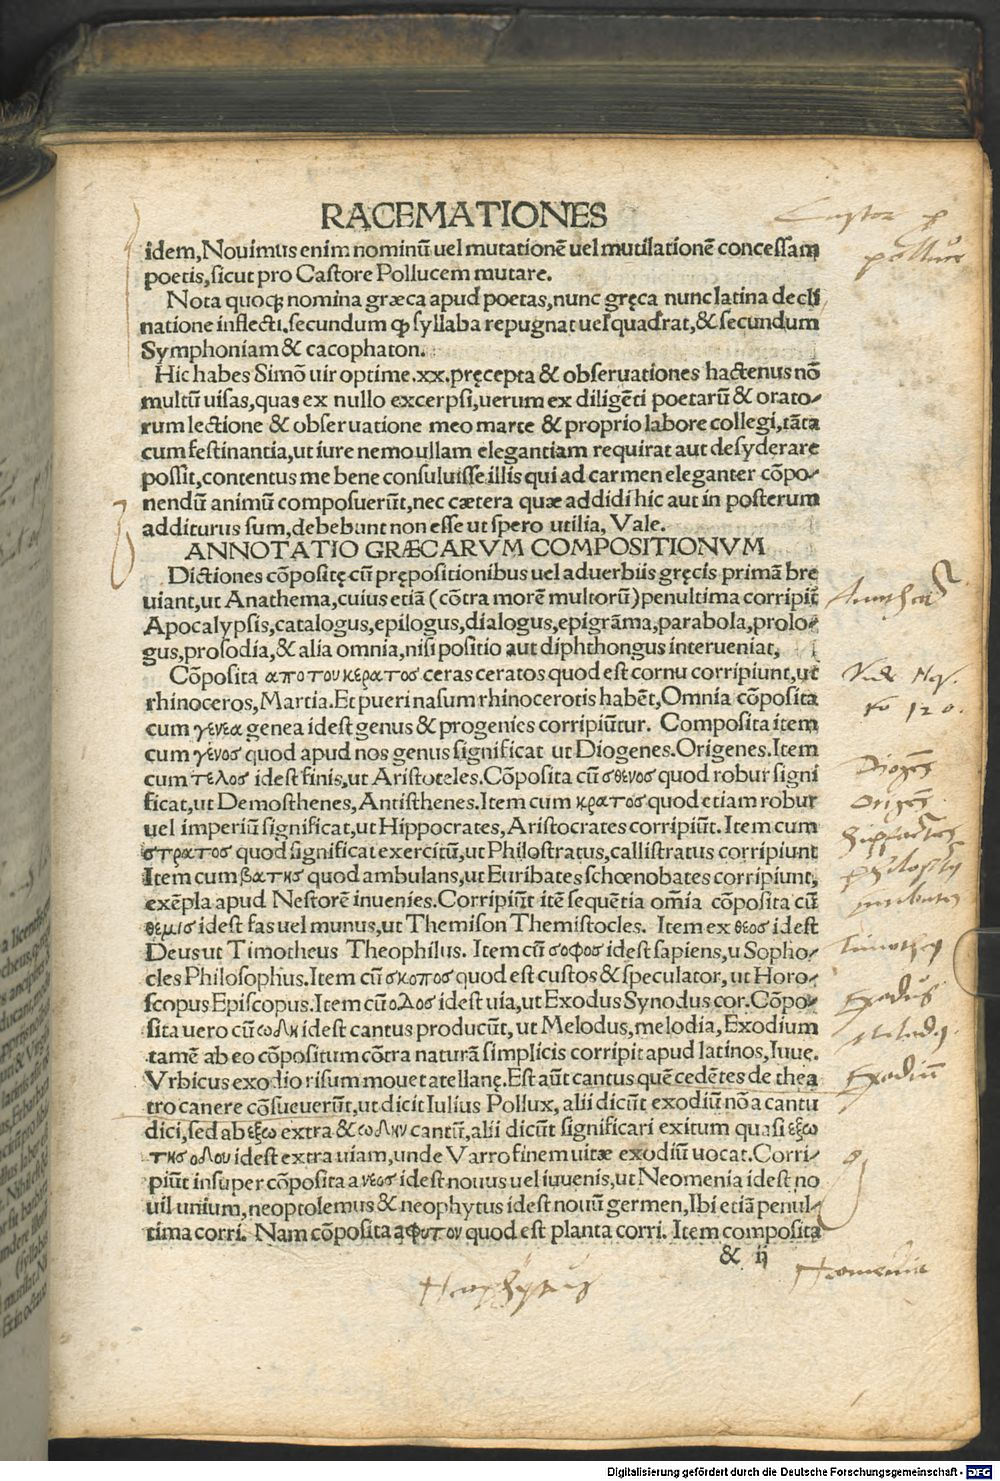 RACEMATIONES
idem, Nouimus enim nominū uel mutationē uel mutilationē concessam
poetis, sicut pro Castore Pollucem mutare.
Nota quoqꝫ nomina græca apud poetas, nunc gręca nunc latina decli
natione inflecti, secundum ꝙ syllaba repugnat uel quadrat, & secundum
Symphoniam & cacophaton.
Hic habes Simō uir optime .xx. pręcepta & obseruationes hactenus nō
multū uisas, quas ex nullo excerpsi, uerum ex diligēti poetarū & orato-
rum lectione & obseruatione meo marte & proprio labore collegi, tāta
cum festinantia, ut iure nemo ullam elegantiam requirat aut desyderare
possit, contentus me bene consuluisse illis qui ad carmen eleganter cōpo-
nendū animū composuerūt, nec cætera quæ addidi hic aut in posterum
additurus sum, debebunt non esse ut spero utilia, Vale.
ANNOTATIO GRÆCARVM COMPOSITIONVM
Dictiones cōpositę cū prępositionibus uel aduerbiis gręcis primā bre
uiant, ut Anathema, cuius etiā (cōtra morē multorū) penultima corripit
Apocalypsis, catalogus, epilogus, dialogus, epigrāma, parabola, prolo-
gus, prosodia, & alia omnia, nisi positio aut diphthongus interueniat,
Cōposita απο του κερατος ceras ceratos quod est cornu corripiunt, ut
rhinoceros, Martia. Et pueri nasum rhinocerotis habēt, Omnia cōposita
cum γενεα genea idest genus & progenies corripiūtur. Composita item
cum γενος quod apud nos genus significat ut Diogenes. Origenes. Item
cum τελος idest finis, ut Aristoteles. Cōposita cū σθενος quod robur signi
ficat, ut Demosthenes, Antisthenes. Item cum κρατος quod etiam robur
uel imperiū significat, ut Hippocrates, Aristocrates corripiūt. Item cum
στρατος quod significat exercitū, ut Philostratus, callistratus corripiunt
Item cum βατης quod ambulans, ut Euribates schœnobates corripiunt,
exēpla apud Nestorē inuenies. Corripiūt itē sequētia omīa cōposita cū
θεμις idest fas uel munus, ut Themison Themistocles. Item ex θεος idest
Deus ut Timotheus Theophilus. Item cū σοφος idest sapiens, u Sopho-
cles Philosophus. Item cū σκοπος quod est custos & speculator, ut Horo-
scopus Episcopus. Item cū οδος idest uia, ut Exodus Synodus cor. Cōpo-
sita uero cū ωδη idest cantus producūt, ut Melodus, melodia, Exodium
tamē ab eo cōpositum cōtra naturā simplicis corripit apud latinos, Iuuę.
Vrbicus exodio risum mouet atellanę. Est aūt cantus quē cedētes de thea
tro canere cōsueuerūt, ut dicit Iulius Pollux, alii dicūt exodiū nō a cantu
dici, sed ab εξω extra & ωδην cantū, alii dicūt significari exitum quasi εξω
της οδου idest extra uiam, unde Varro finem uitæ exodiū uocat. Corri-
piūt insuper cōposita a νεος idest nouus uel iuuenis, ut Neomenia idest no
uil unium, neoptolemus & neophytus idest nouū germen, Ibi etiā penul-
tima corri. Nam cōposita a φυτον quod est planta corri. Item composita
& ij
Castor p
pollux
fo 120.
Diogēs
Origēs
Exodus
Exodiū
Neophytus
Neomenia
Digitalisierung gefördert durch die Deutsche Forschungsgemeinschaft - DFG